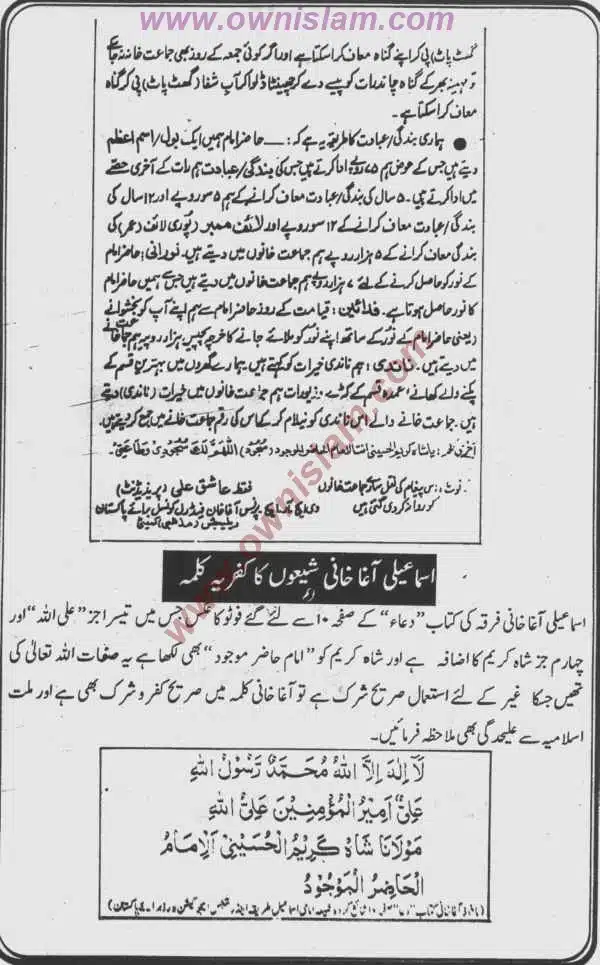 www.ownislam.com
گھٹ پاٹ) پی کر اپنے گناہ معاف کرا سکتا ہے اور اگر کوئی جمعہ کے روز بھی جماعت خانہ نہ جائے
تو مہینہ بھر کے گناہ چاند رات کو پیسے دے کر چھینٹا ڈلوا کر آپ شفا (گھٹ پاٹ) پی کر گناہ
معاف کرا سکتا ہے۔
● ہماری بندگی / عبادت کا طریقہ یہ ہے کہ:۔۔۔ حاضر امام ہمیں ایک بول / اسم اعظم
دیتے ہیں جس کے عوض ہم ۷۵ روپے ادا کرتے ہیں جس کی بندگی / عبادت ہم رات کے آخری حصے
میں ادا کرتے ہیں۔ ۵ سال کی بندگی / عبادت معاف کرانے کے ہم ۵ سو روپے اور ۱۲ سال کی
بندگی / عبادت معاف کرانے کے ۱۲ سو روپے اور لائف ممبر (پوری لائف (عمر) کی
بندگی معاف کرانے کے ۵ ہزار روپے ہم جماعت خانوں میں دیتے ہیں۔ نورانی: حاضر امام
کے نور کو حاصل کرنے کے لئے ۷ ہزار روپے ہم جماعت خانوں میں دیتے ہیں جس سے ہمیں حاضر امام
کا نور حاصل ہوتا ہے۔ فدائین: قیامت کے روز حاضر امام سے ہم اپنے آپ کو بخشوانے
یعنی حاضر امام کے نور کے ساتھ اپنے نور کو ملائے جانے کا خرچہ پچیس ہزار روپیہ ہم جماعت خانے
میں دیتے ہیں۔ ناندی: ہم ناندی خیرات کو کہتے ہیں۔ ہمارے گھروں میں بہترین قسم کے
پکنے والے کھانے، عمدہ قسم کے کپڑے، زیورات ہم جماعت خانوں میں خیرات (ناندی) دیتے
ہیں۔ جماعت خانے والے اس ناندی کو نیلام کر کے اس کی رقم جماعت خانے میں جمع کر دیتے ہیں۔
یا شاہ کریم الحسینی انت الامام الحاضر الموجود (سجود) اللّٰھم لک سجودی وطاعتی۔
نوٹ: اس پیغام کی نقل سارے جماعت خانوں
کو روانہ کر دی گئی ہیں
فقط عاشق علی (پریذیڈنٹ)
پرنس آغا خان فیڈرل کونسل برائے پاکستان
اسماعیلی آغا خانی شیعوں کا کفریہ کلمہ
اسماعیلی آغا خانی فرقہ کی کتاب "دعاء" کے صفحہ ۱۰ سے لئے گئے فوٹو کا عکس جس میں تیسرا جز "علی اللہ" اور
چہارم جز شاہ کریم کا اضافہ ہے اور شاہ کریم کو "امام حاضر موجود" بھی لکھا ہے یہ صفات اللہ تعالیٰ کی
تھیں جسکا غیر کے لئے استعمال صریح شرک ہے تو آغا خانی کلمہ میں صریح کفر و شرک بھی ہے اور ملت
اسلامیہ سے علیحدگی بھی ملاحظہ فرمائیں۔
لَا اِلٰهَ اِلَّا اللهُ مُحَمَّدٌ رَسُوْلُ اللهِ
عَلِیٌّ اَمِیْرُ الْمُؤْمِنِیْنَ عَلِیُّ اللهِ
مَوْلَانَا شَاهْ کَرِیْمُ الْحُسَیْنِیْ اَلْاِمَامُ
الْحَاضِرُ الْمَوْجُوْدُ
www.ownislam.com